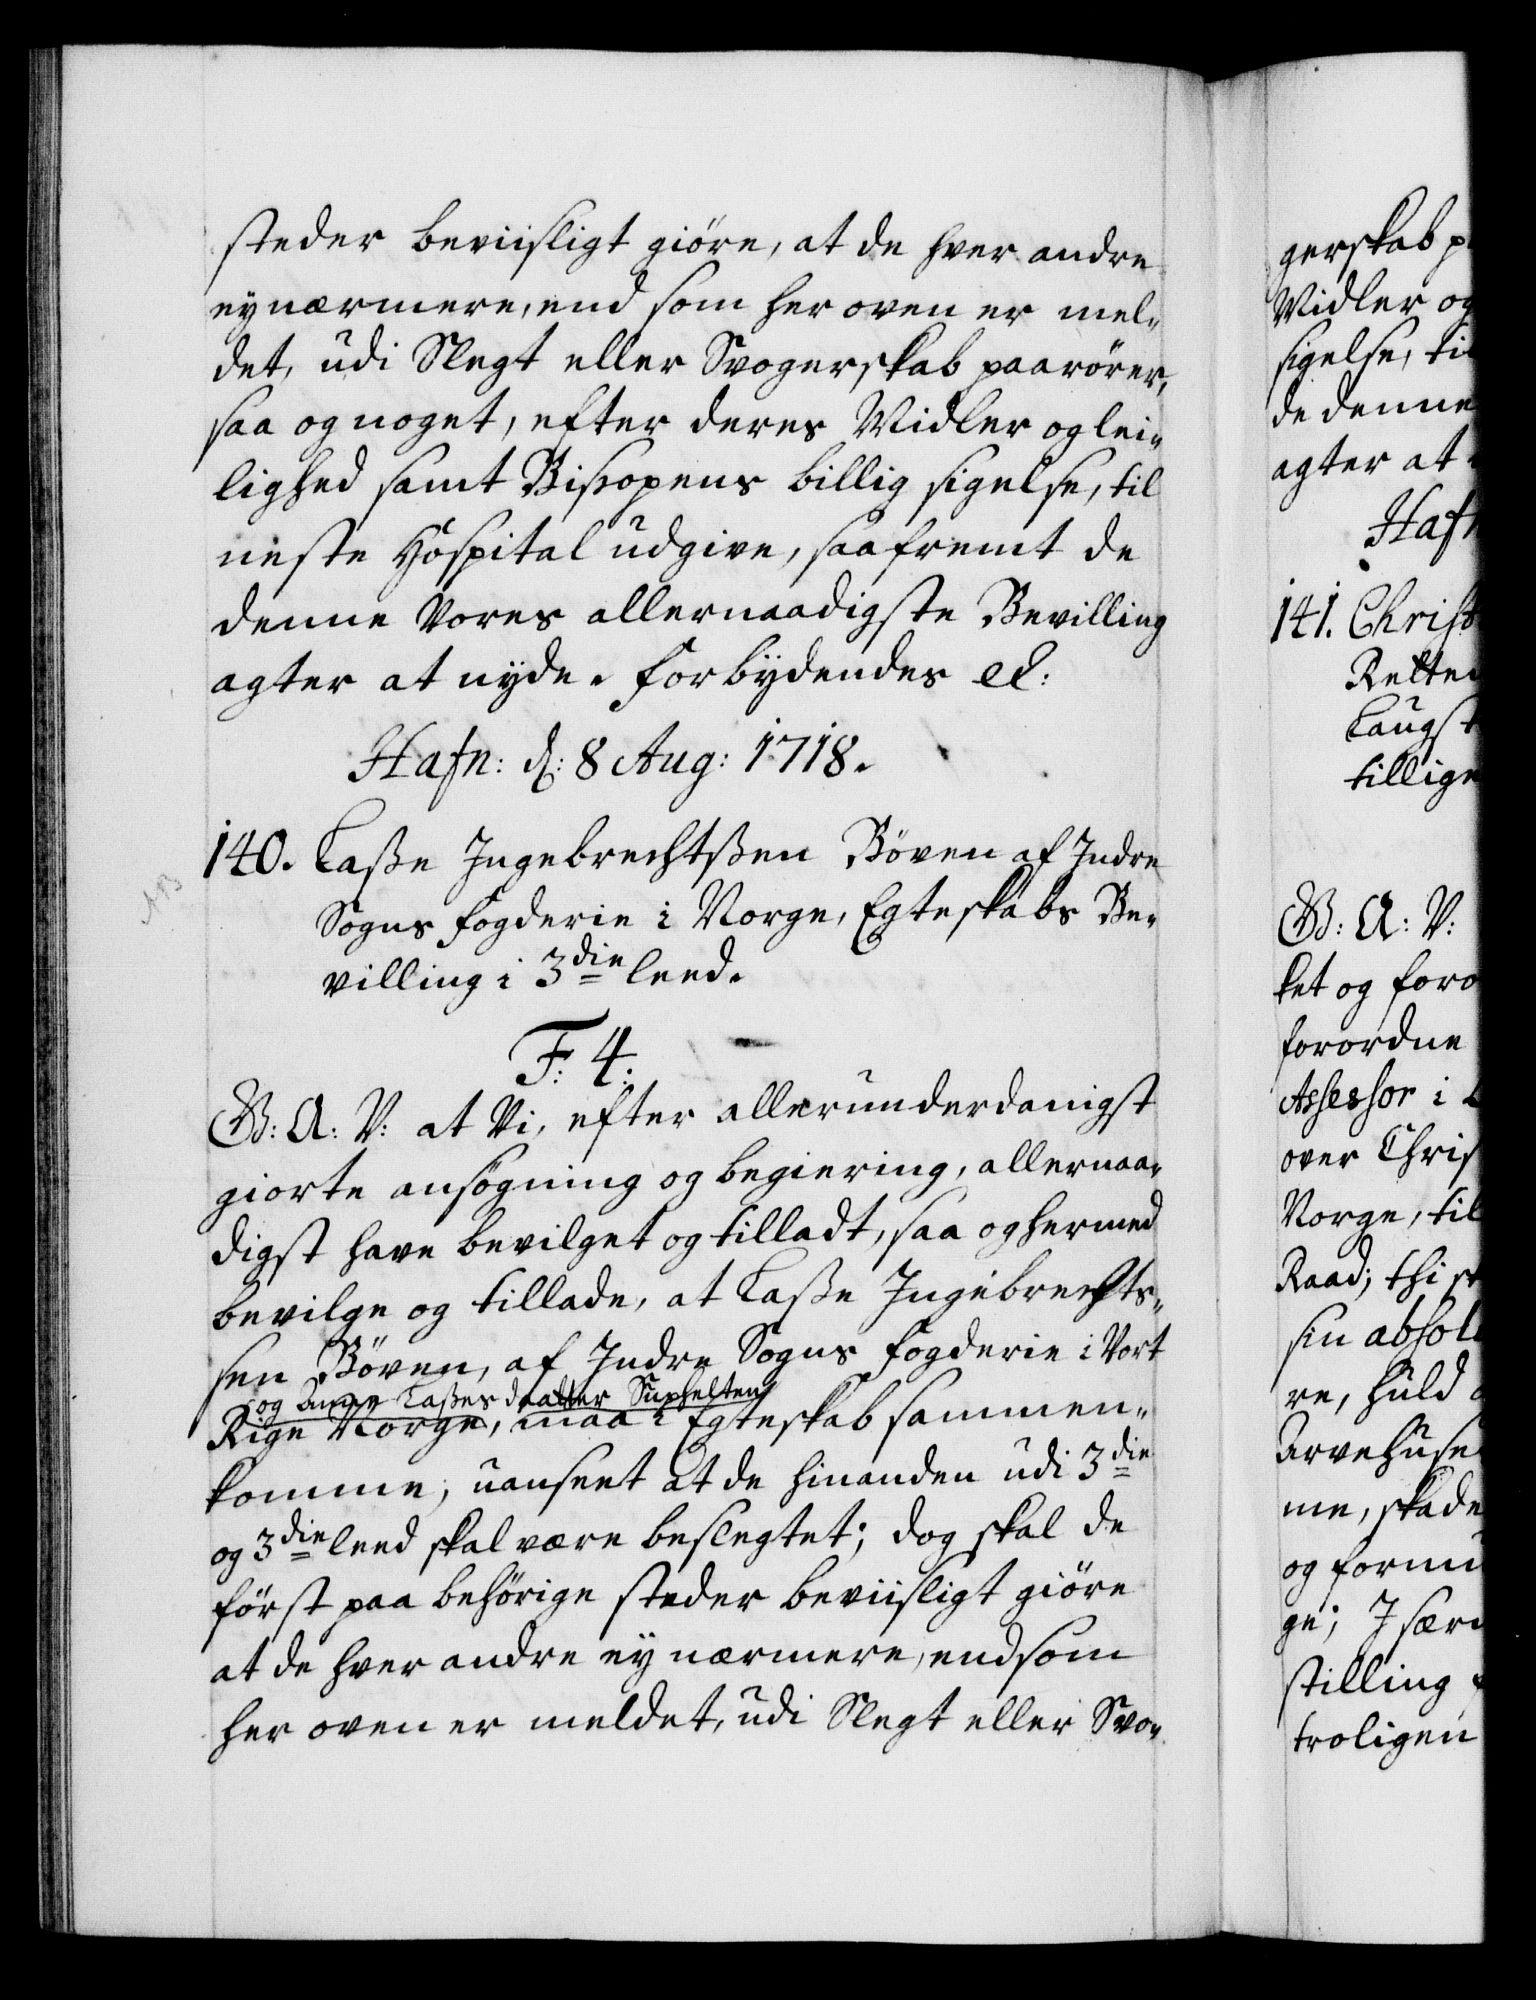 steder beviisligt giöre, at de hver andre
ey nærmere, end som her oven er mel-
det, udi Slegt eller Svogerskab paarörer,
saa og noget, efter deres Midler og lei-
lighed samt Bispens billig sigelse, til
neste Hospital udgive, saafremt de
denne Vores allernaadigste Bevilling
agter at nyde. Forbydendes etc:
Hafn: d: 8 Aug: 1718.
140. Lasse Ingebrechtssen Böyen af Indre
Sogns fogderie i Norge, Egteskabs Be-
villing i 3die leed.
F: 4:
G: A: V: at Vi, efter allerunderdanigst
giorte ansögning og begiering, allernaa-
digst have bevilget og tilladt, saa og hermed
bevilge og tillade, at Lasse Ingebrechts-
sen Böyen, af Indre Sogns fogderie i Vort
og Lasses daatter Suphelten
Rige Norge, maa i Egteskab sammen-
komme, uanseet at de hinanden udi 3die
og 3die leed skal være beslegtet; dog skal de
först paa behörige steder beviisligt giöre
at de hver andre ey nærmere, end som
her oven er meldet, udi Slegt eller Svo-
gerskab
Midler og
sigelse, til
de denne
agter at
Hafn
141. Christ
Rette
Laugst
tillige
G: A: V:
ket og foro
forordne
Assessor i
over Chris
Norge, til
Raad; thi
sin absol
re, huld
Arvehuse
me, skade
og formu
ge; I sær
stilling
troligen